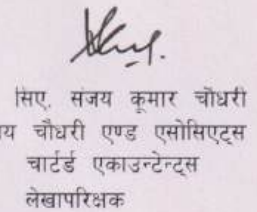 सिए. संजय कुमार चौधरी
य चौधरी एण्ड एसोसिएट्स
चार्टर्ड एकाउन्टेन्ट्स
लेखापरिक्षक